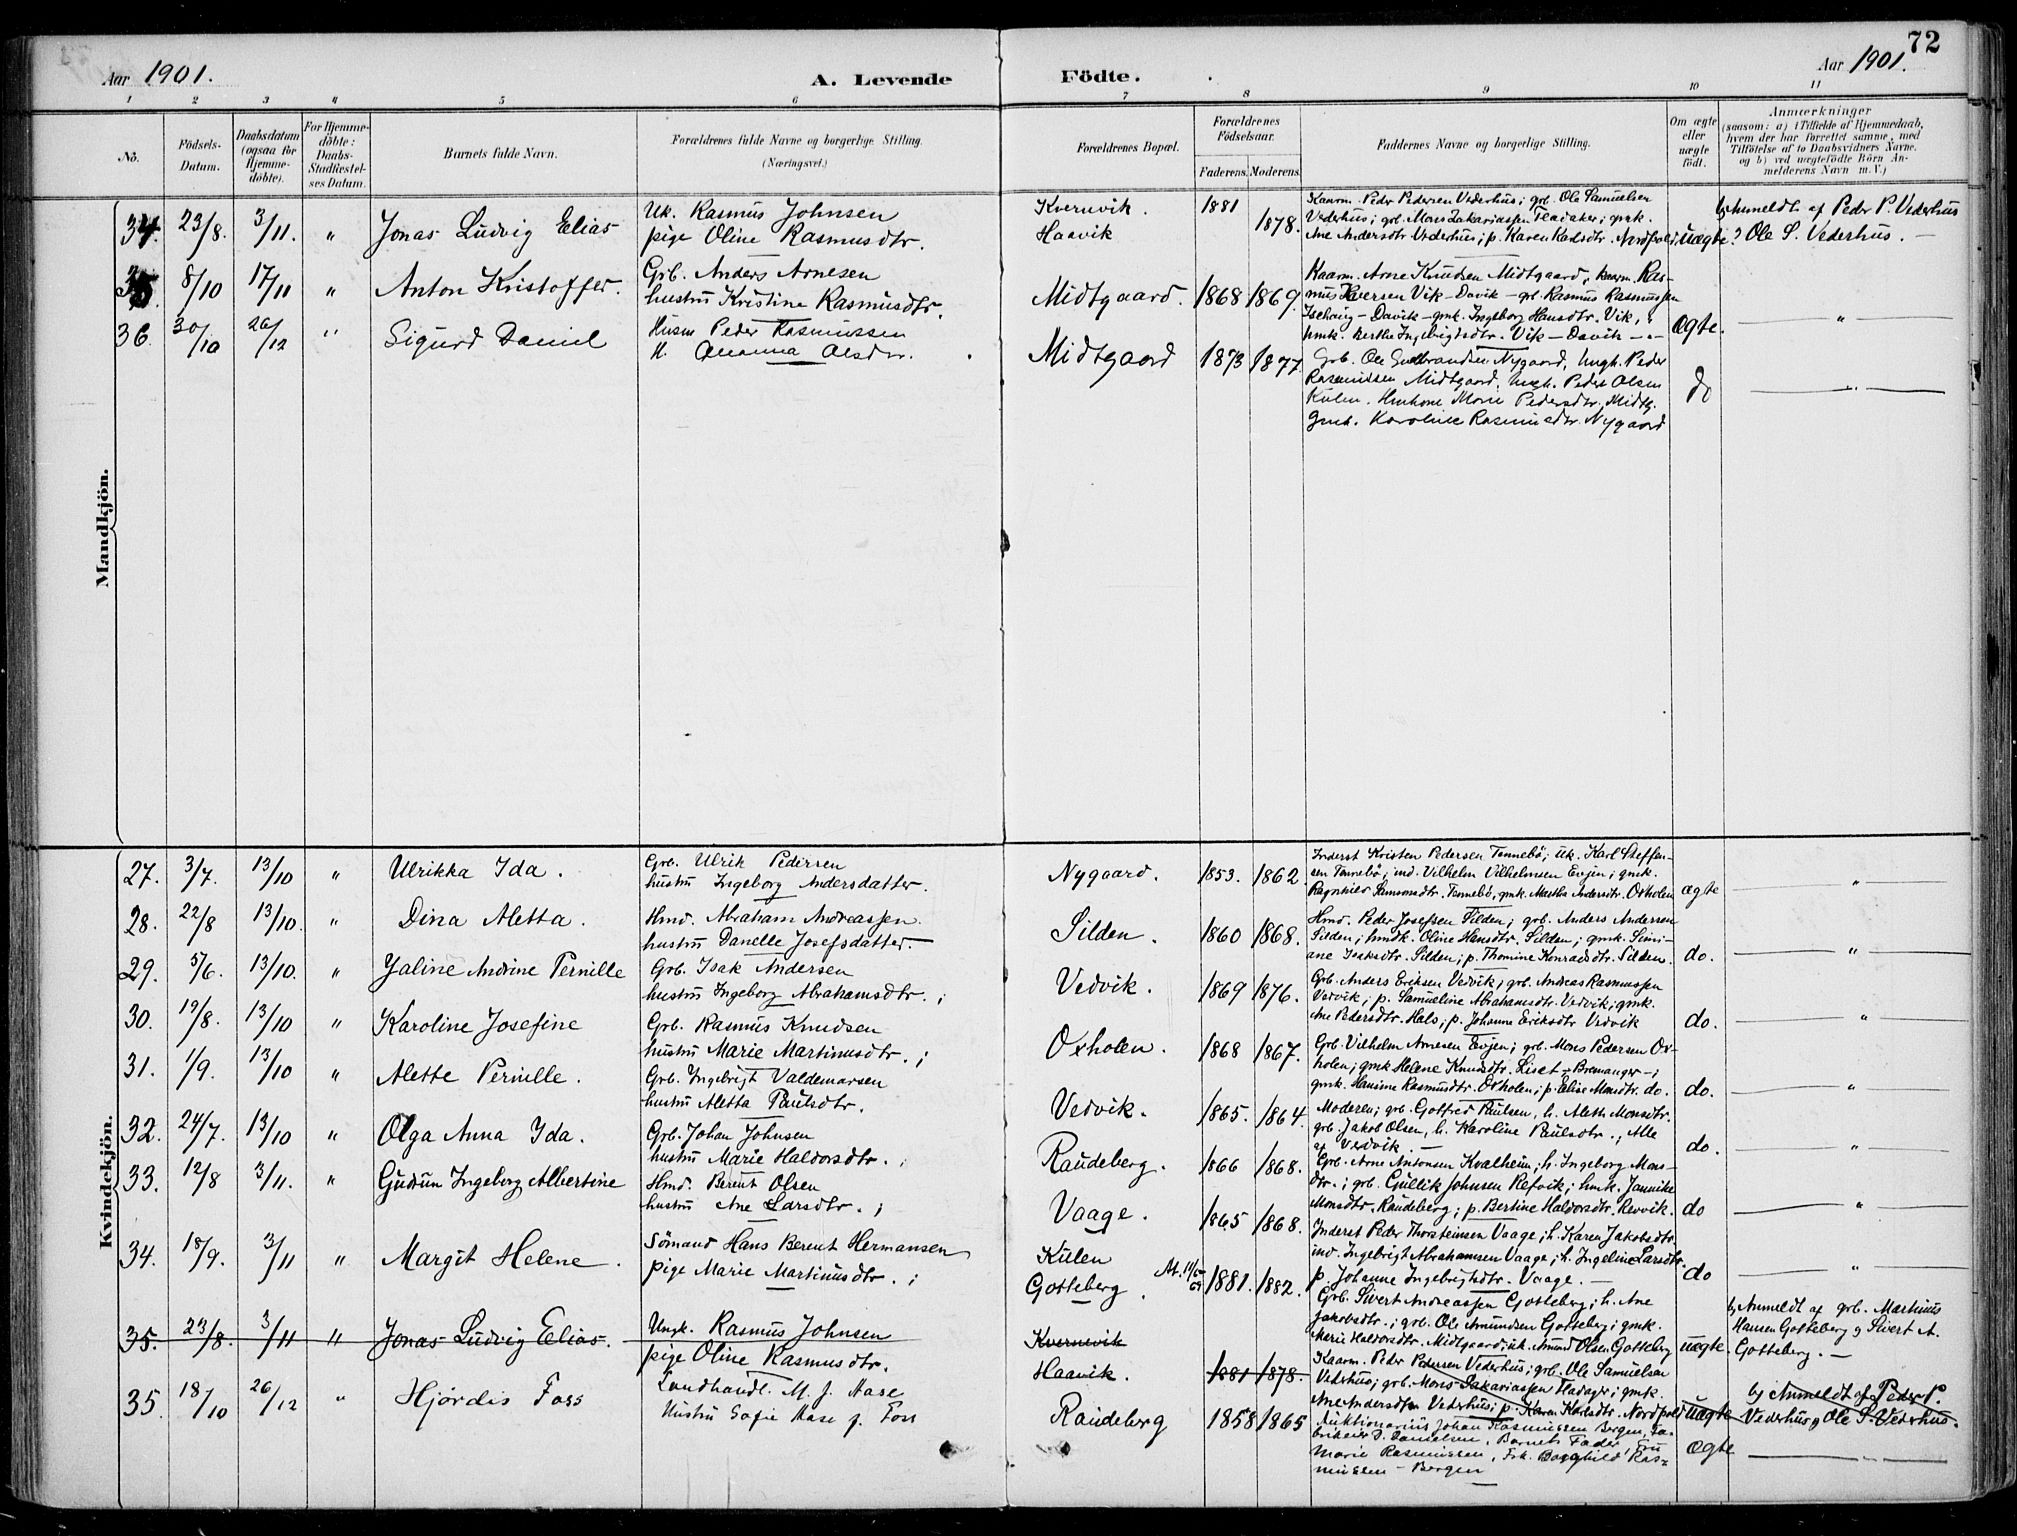 72
Aar 1901.
A. Levende Födte.
Aar 1901.
1 2 3 4 5 6 7 8 9 10 11
No.
Födsels-Datum.
Daabsdatum (ogsaa for Hjemme-döbte).
For Hjemme-döbte: Daabs-Stadfæstel-ses Datum.
Barnets fulde Navn.
Forældrenes fulde Navne og borgerlige Stilling. (Næringsvei.)
Forældrenes Bopæl.
Forældrenes Födselsaar.
Faderens. Moderens.
Faddernes Navne og borgerlige Stilling.
Om ægte eller uægte födt.
Anmærkninger
(saasom: a) i Tilfælde af Hjemmedaab, hvem der har forrettet samme, med Tilföielse af to Daabsvidners Navne. og b) ved uægtefödte Börn Anmelderens Navn m. V.)
Mandkjön.
34. 23/8. 3/11. " Jonas Ludvig Elias
Uk. Rasmus Johnsen
pige Oline Rasmusdtr.
Kvernvik.
Haavik
1881
1878.
Kaarm. Peder Pedersen Vederhus; grb. Ole Samuelsen
Vederhus; grb. Mons Zakariassen; gmk.
Ane Andersdtr. Vederhus; p. Karen Karlsdtr. Nordpold
uægte
b) Anmeldt af Peder P. Vederhus
Ole S. Vederhus.
35. 8/10 17/11 " Anton Kristoffer.
Grb. Anders Arnesen
hustru Kristine Rasmusdtr.
Midtgaard. 1868 1869.
Kaarm. Arne Knudsen Midtgaard, kaarm. Ras-
mus Iversen Vik - Davik - grb. Rasmus Rasmussen
- Davik - gmk. Ingeborg Hansdtr. Vik,
hmk. Berthe Ingebrigtsdtr. Vik - Davik - "-
ægte.
"
36. 30/10 26/12 " Sigurd Daniel
Husm Peder Rasmussen
H. Olsdtr.
Midtgaard 1873 1877
Grb. Ole Gulbrandsen Nygaard, Ungk. Peder
Rasmussen Midtgaard, Ungk. Peder Olsen
Kulen. Marie Pedersdtr. Midtg.
Gmk. Karoline Rasmusdtr. Nygaard
do
"
Kvindekjön.
27. 3/7. 13/10 " Ulrikka Ida.
Grb. Ulrik Pedersen
hustru Ingeborg Andersdatter.
Nygaard. 1853. 1862
Inderst Kristen Pedersen Tennebö; uk. Karl Steffen-
sen Tennebö; ind. Vilhelm Vilhelmsen Evjen; gmk.
Ragnhild Samsonsdtr. Tennebö, gmk. Martha Andersdtr. Oxholen
ægte
"
28. 22/8 13/10. " Dina Aletta.
Hmd. Abraham Andreassen
hustru Danelle Josefsdatter.
Silden. 1860 1868.
Hmd. Peder Josefsen Silden; grb. Anders Andersen
Silden; hmdk. Oline Hansdtr. Silden; gmk. Simi-
ane Isaksdtr. Silden; p. Thomine Konradsdtr. Silden.
do.
"
29. 5/6. 13/10. " Jaline Andrine Pernille
Grb. Isak Andersen
hustru Ingeborg Abrahamsdtr.;
Vedvik. 1869 1876.
Grb. Anders Eriksen Vedvik; grb. Andreas Rasmussen
Vedvik; p. Samueline Abrahamsdtr. Vedvik; gmk.
Ane Pedersdtr. Hals; p. Johanne Eriksdtr Vedvik
do.
"
30. 19/8. 13/10 " Karoline Josefine
Grb. Rasmus Knudsen
hustru Marie Martinusdtr.;
Oxholen. 1868 1867.
Grb. Vilhelm Arnesen Evjen; grb. Mons Pedersen Ox-
holen; gmk Helene Knudsdtr. Liset - Bremanger -;
gmk. Hansine Rasmusdtr. Oxholen; p. Elise Monsdtr. do.
do.
"
31. 1/9. 13/10 " Alette Pernille.
Grb. Ingebrigt Valdemarsen
hustru Aletta Paulsdtr.
Vedvik. 1865. 1864.
Moderen; grb. Gotfred Paulsen, h. Aleth. Monsdtr.
grb. Jakob Olsen, h. Karoline Paulsdtr., Alle
af Vedvik
do.
"
32. 24/7. 13/10 " Olga Anna Ida.
Grb. Johan Johnsen
hustru Marie Haldorsdtr.;
Raudeberg. 1866 1868.
Grb. Arne Antonsen Kvalheim; h. Ingeborg Mons-
dtr.; grb. Gullik Johnsen Refvik; hmk. Jannike
Monsdtr. Raudeberg; p. Bertine Haldorsdtr. Revvik.
do
"
33. 12/8 3/11. " Gudrun Ingeborg Albertine
Hmd. Berent Olsen
hustru Ane Larsdtr.;
Vaage. 1865 1868.
Inderst Peder Thorsteinsen Vaage; h. Karen Jakobsdtr.
ind. Ingebrigt Abrahamsen Vaage; h. Ingeline Larsdtr.
p. Johanne Ingebrigtsdtr. Vaage.
do
"
34. 18/9. 3/11 " Margit Helene.
Sömand Hans Berent Hermansen
pige Marie Martinusdtr.;
Kulen
Gotteberg. 1881. 1882.
Grb. Sivert Andreassen Gotteberg; h. Ane
Jakobsdtr.; grb. Ole Amundsen Gotteberg; gmk.
Marie Haldorsdtr. Midtgaard; uk. Amund Olsen Gotteberg
uægte.
b) Anmeldt af grb. Martinus
Hansen Gotteberg og Sivert A.
Gotteberg.
35. 23/8. 3/11 " Jonas Ludvig Elias.
Ungk. Rasmus Johnsen
pige Oline Rasmusdtr.
Kvernevik
Haavik. 1881 1878.
Kaarm. Peder Pedersen Vederhus; grb. Ole Samuelsen
Vederhus; grb. Mons Zakariassen; gmk.
Ane Andersdtr Vederhus; p. Karen Karlsdtr. Nordpold
uægte
b) Anmeldt af Peder P.
Vederhus og Ole S. Vederhus.
35 18/10 26/12 " Hjördis Foss
Landhandl. M. J. Aase
Hustru Sofie Aase f. Foss
Raudeberg 1858 1865
Auktionarius Johan Rasmussen Bergen, Fa-
D. Danielsen, Barnets Fader, Fru
Marie Rasmussen, Frk. Borghild Ras-
mussen - Bergen
ægte
"